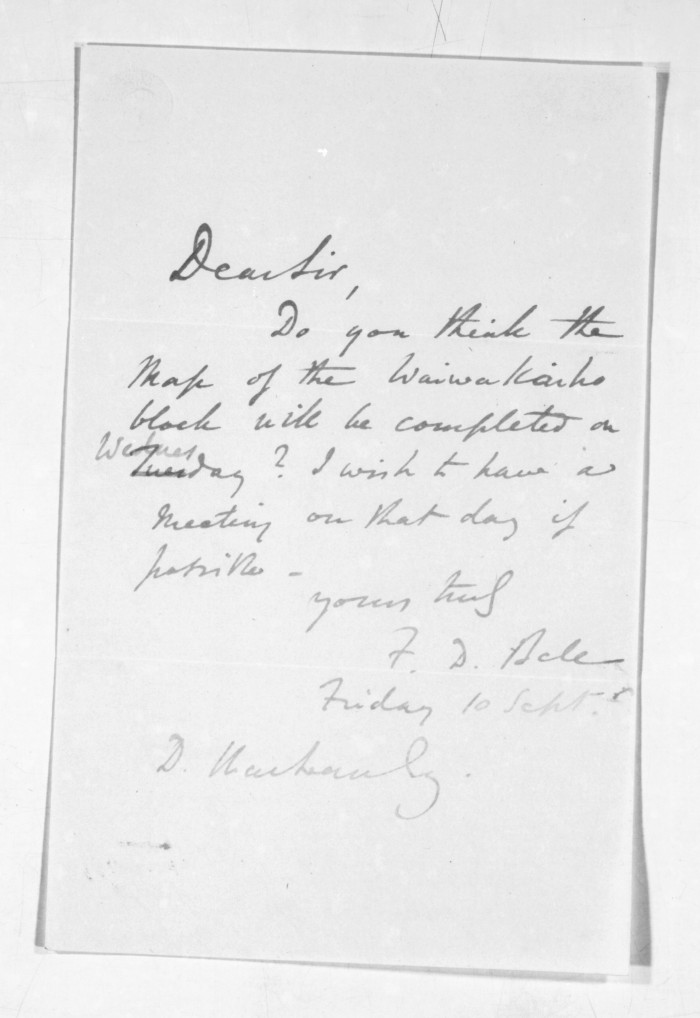 Dear Sir,
Do you think the
Map of the Waiwakaiho
block will be completed on
Wednes
Tuesday? I wish to have a
meeting on that day if
possible -
yours truly
F. D. Bell
Friday 10 Septr.
D.